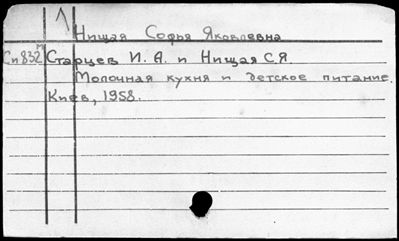 Нищая Софья Яковлевна
Си832м Старцев И. А. и Нищая С.Я.
Молочная кухня и детское питание.
Киев, 1958.